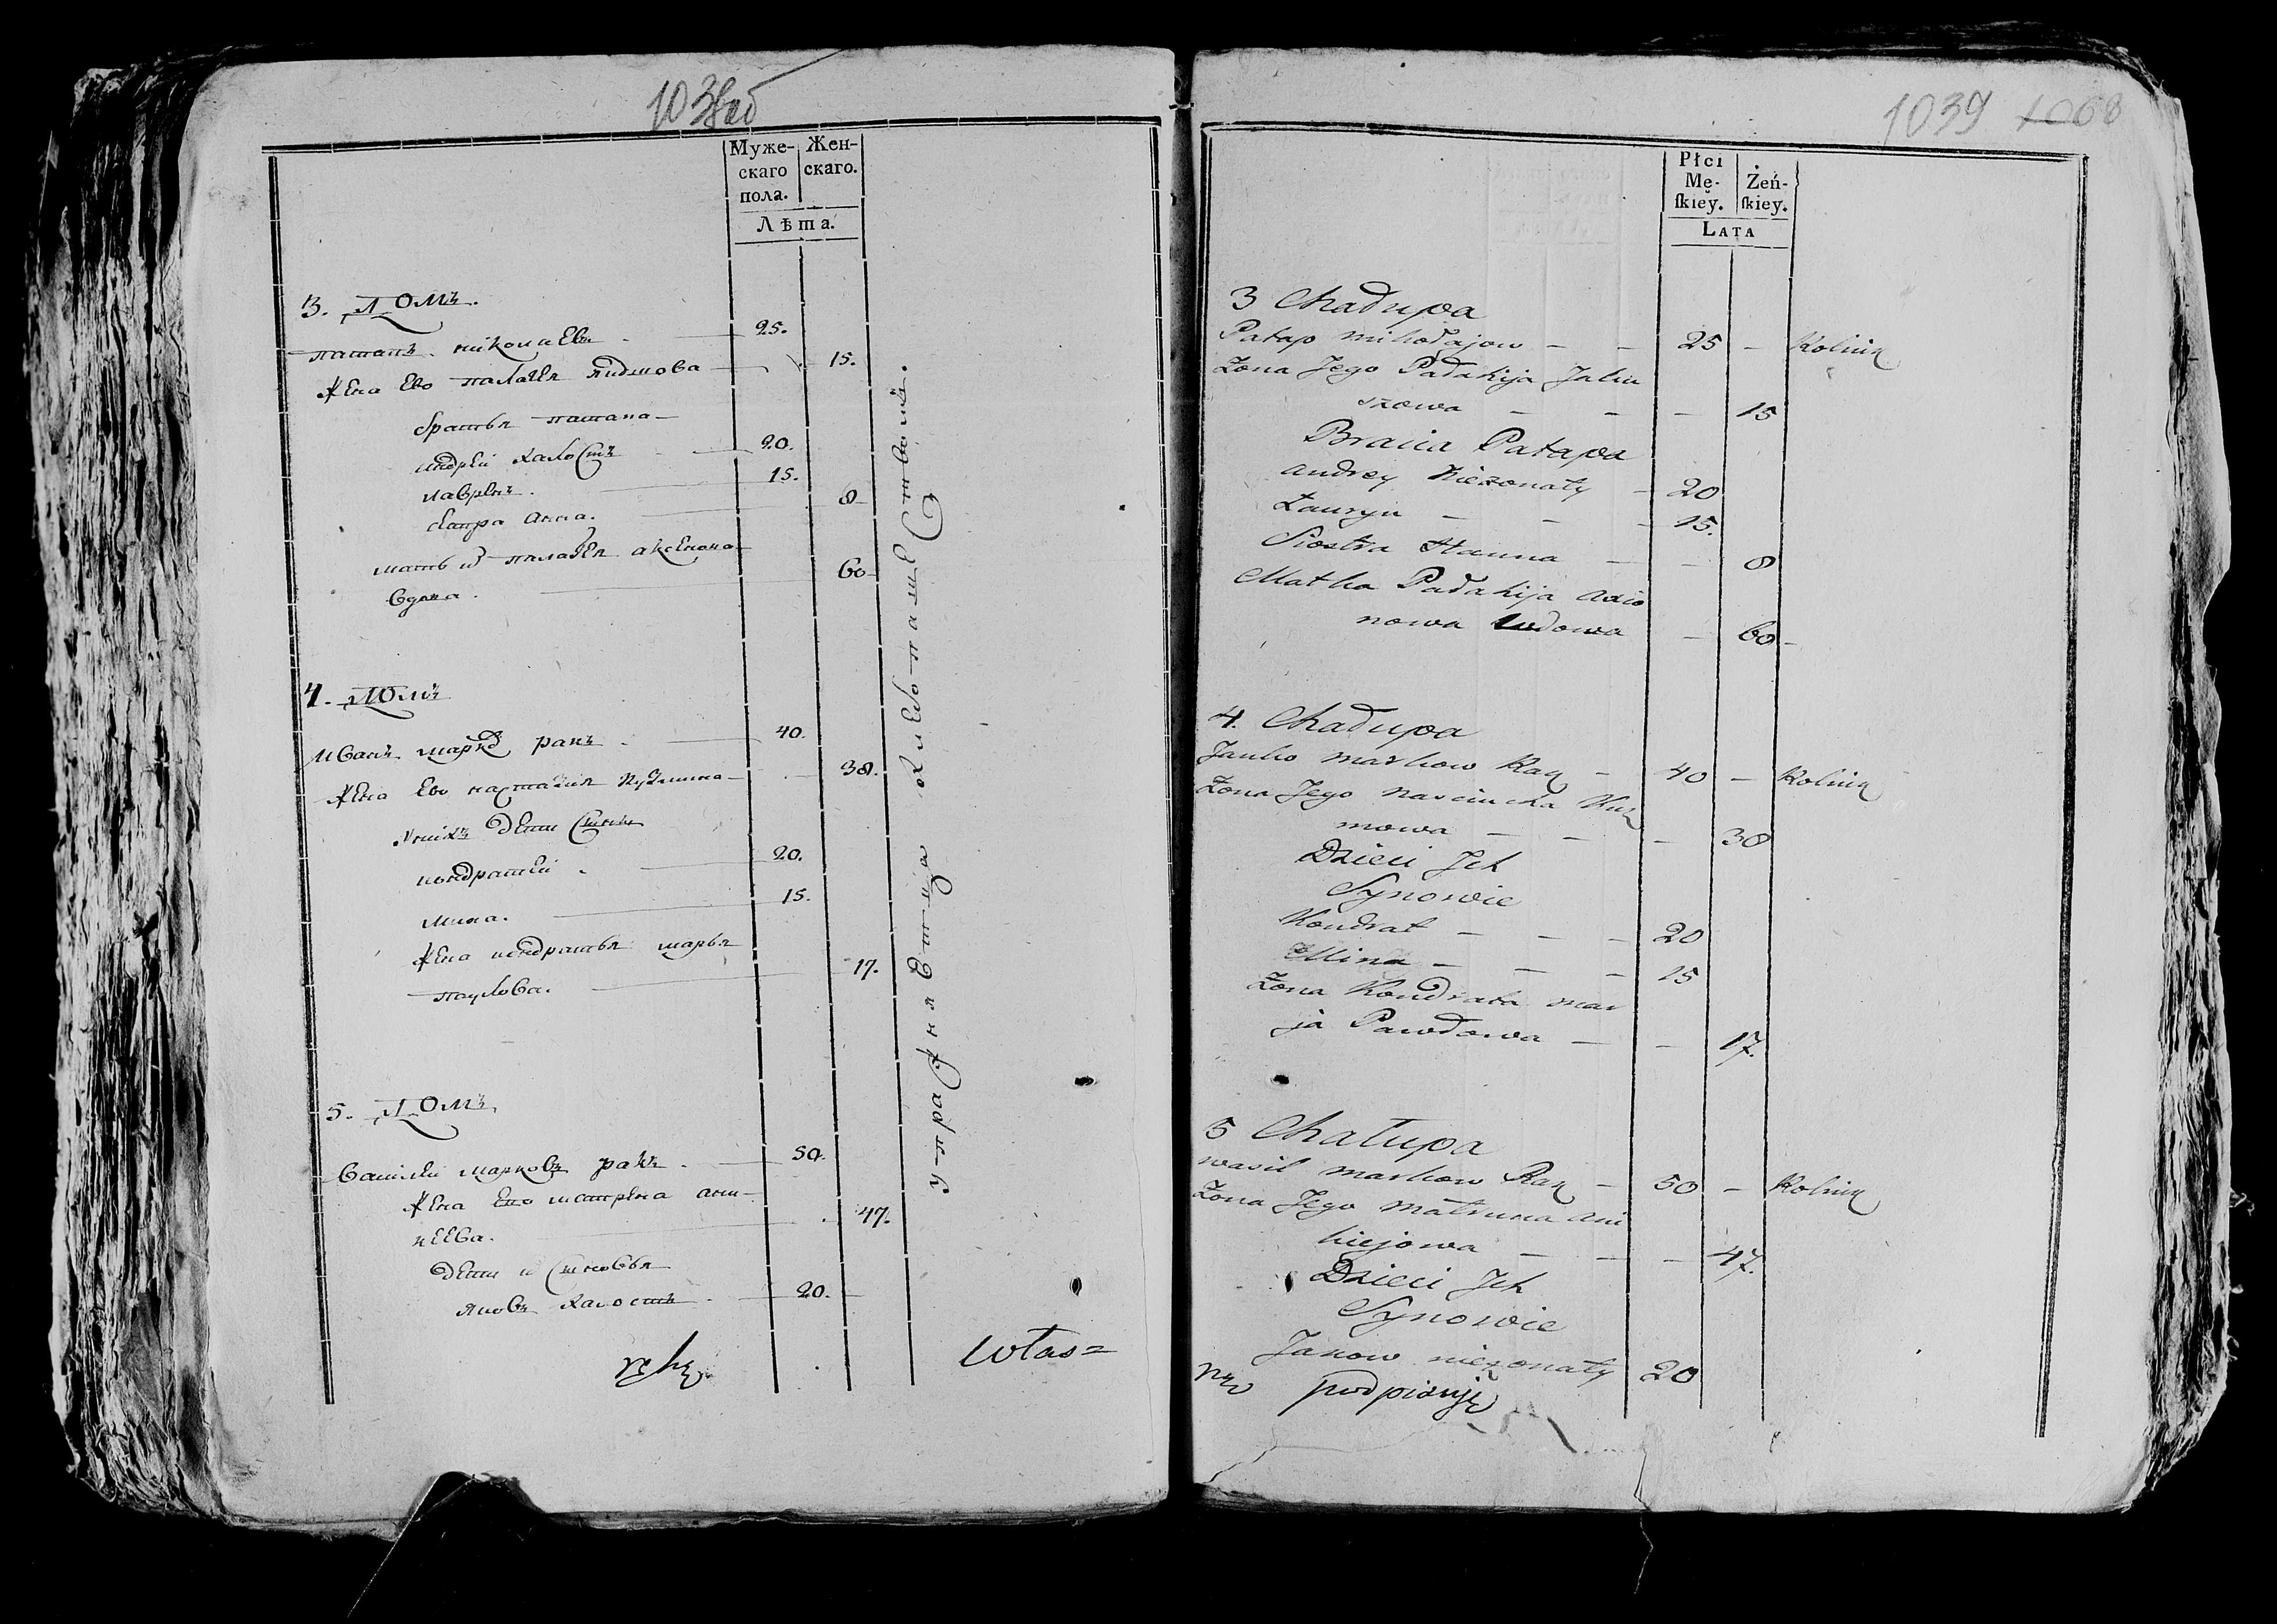 1038 об
Муже- Жен-
скаго скаго.
пола.
Лѣта.
3. Домъ.
патапъ николаевъ 25.
жена ево палагея 15.
братья патапа
андрей халостъ 20.
лаврѣнъ. 15.
сестра анна. 8
мать их палагея аксенова
вдова. 60
4. Домъ
иванъ марков ракъ 40.
жена ево настасия кузмина 38.
у них дети сыны
кондратей 20.
мина. 15.
жена кондратья марья
паулова. 17.
5. Домъ
василей марковъ ракъ. 50.
жена ево матрена ани-
кеева. 47.
дети их сыновья
яковъ халостъ 20.
упражняется хлебопашествомъ.
ręką własz
1039 1068
Płci
Mę- Żeń-
ſkiey. ſkiey.
LATA
3 Chałupa
Patap mikołajow 25 Rolnik
Zona Jego Pałahija Jaku
szowa 15
Bracia Patapa
andrey Niezonaty 20
Ławryn 15.
Siostra Hanna 8
Matka Pałahija axio
nowa wdowa 60
4. Chałupa
Janko markow Rak 40 Rolnik
Zona Jego nasciucha Kuz
mowa 38
Dzieci Jch
Synowie
Kondrat 20
Mina 15
Zona Kondrata mar
ja Pawłowa 17.
5 Chałupa
wasil markow Rak 50 Rolnik
Zona Jego matruna ani
kiejowa 47.
Dzieci Jch
Synowie
Jakow niezonaty 20
ną podpisuję